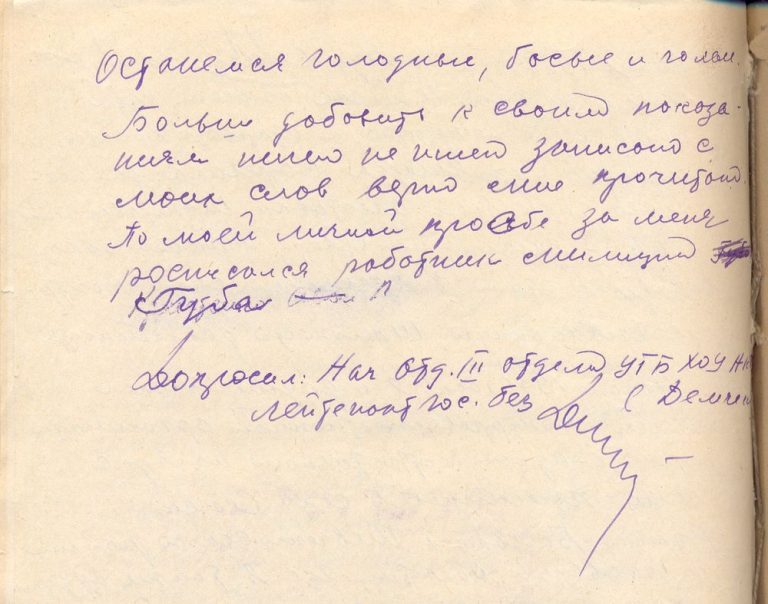 Останемся голодные, босые и голые.
Больше добовить к своим показа-
ниям ничего не имею записано с
моих слов верно мне прочитано.
По моей личной прозбе за меня
росписался работник милиции
Губа
Допросил: Нач Отд. III отдела УГБ ХОУ НК
лейтенант гос. без (Демчен